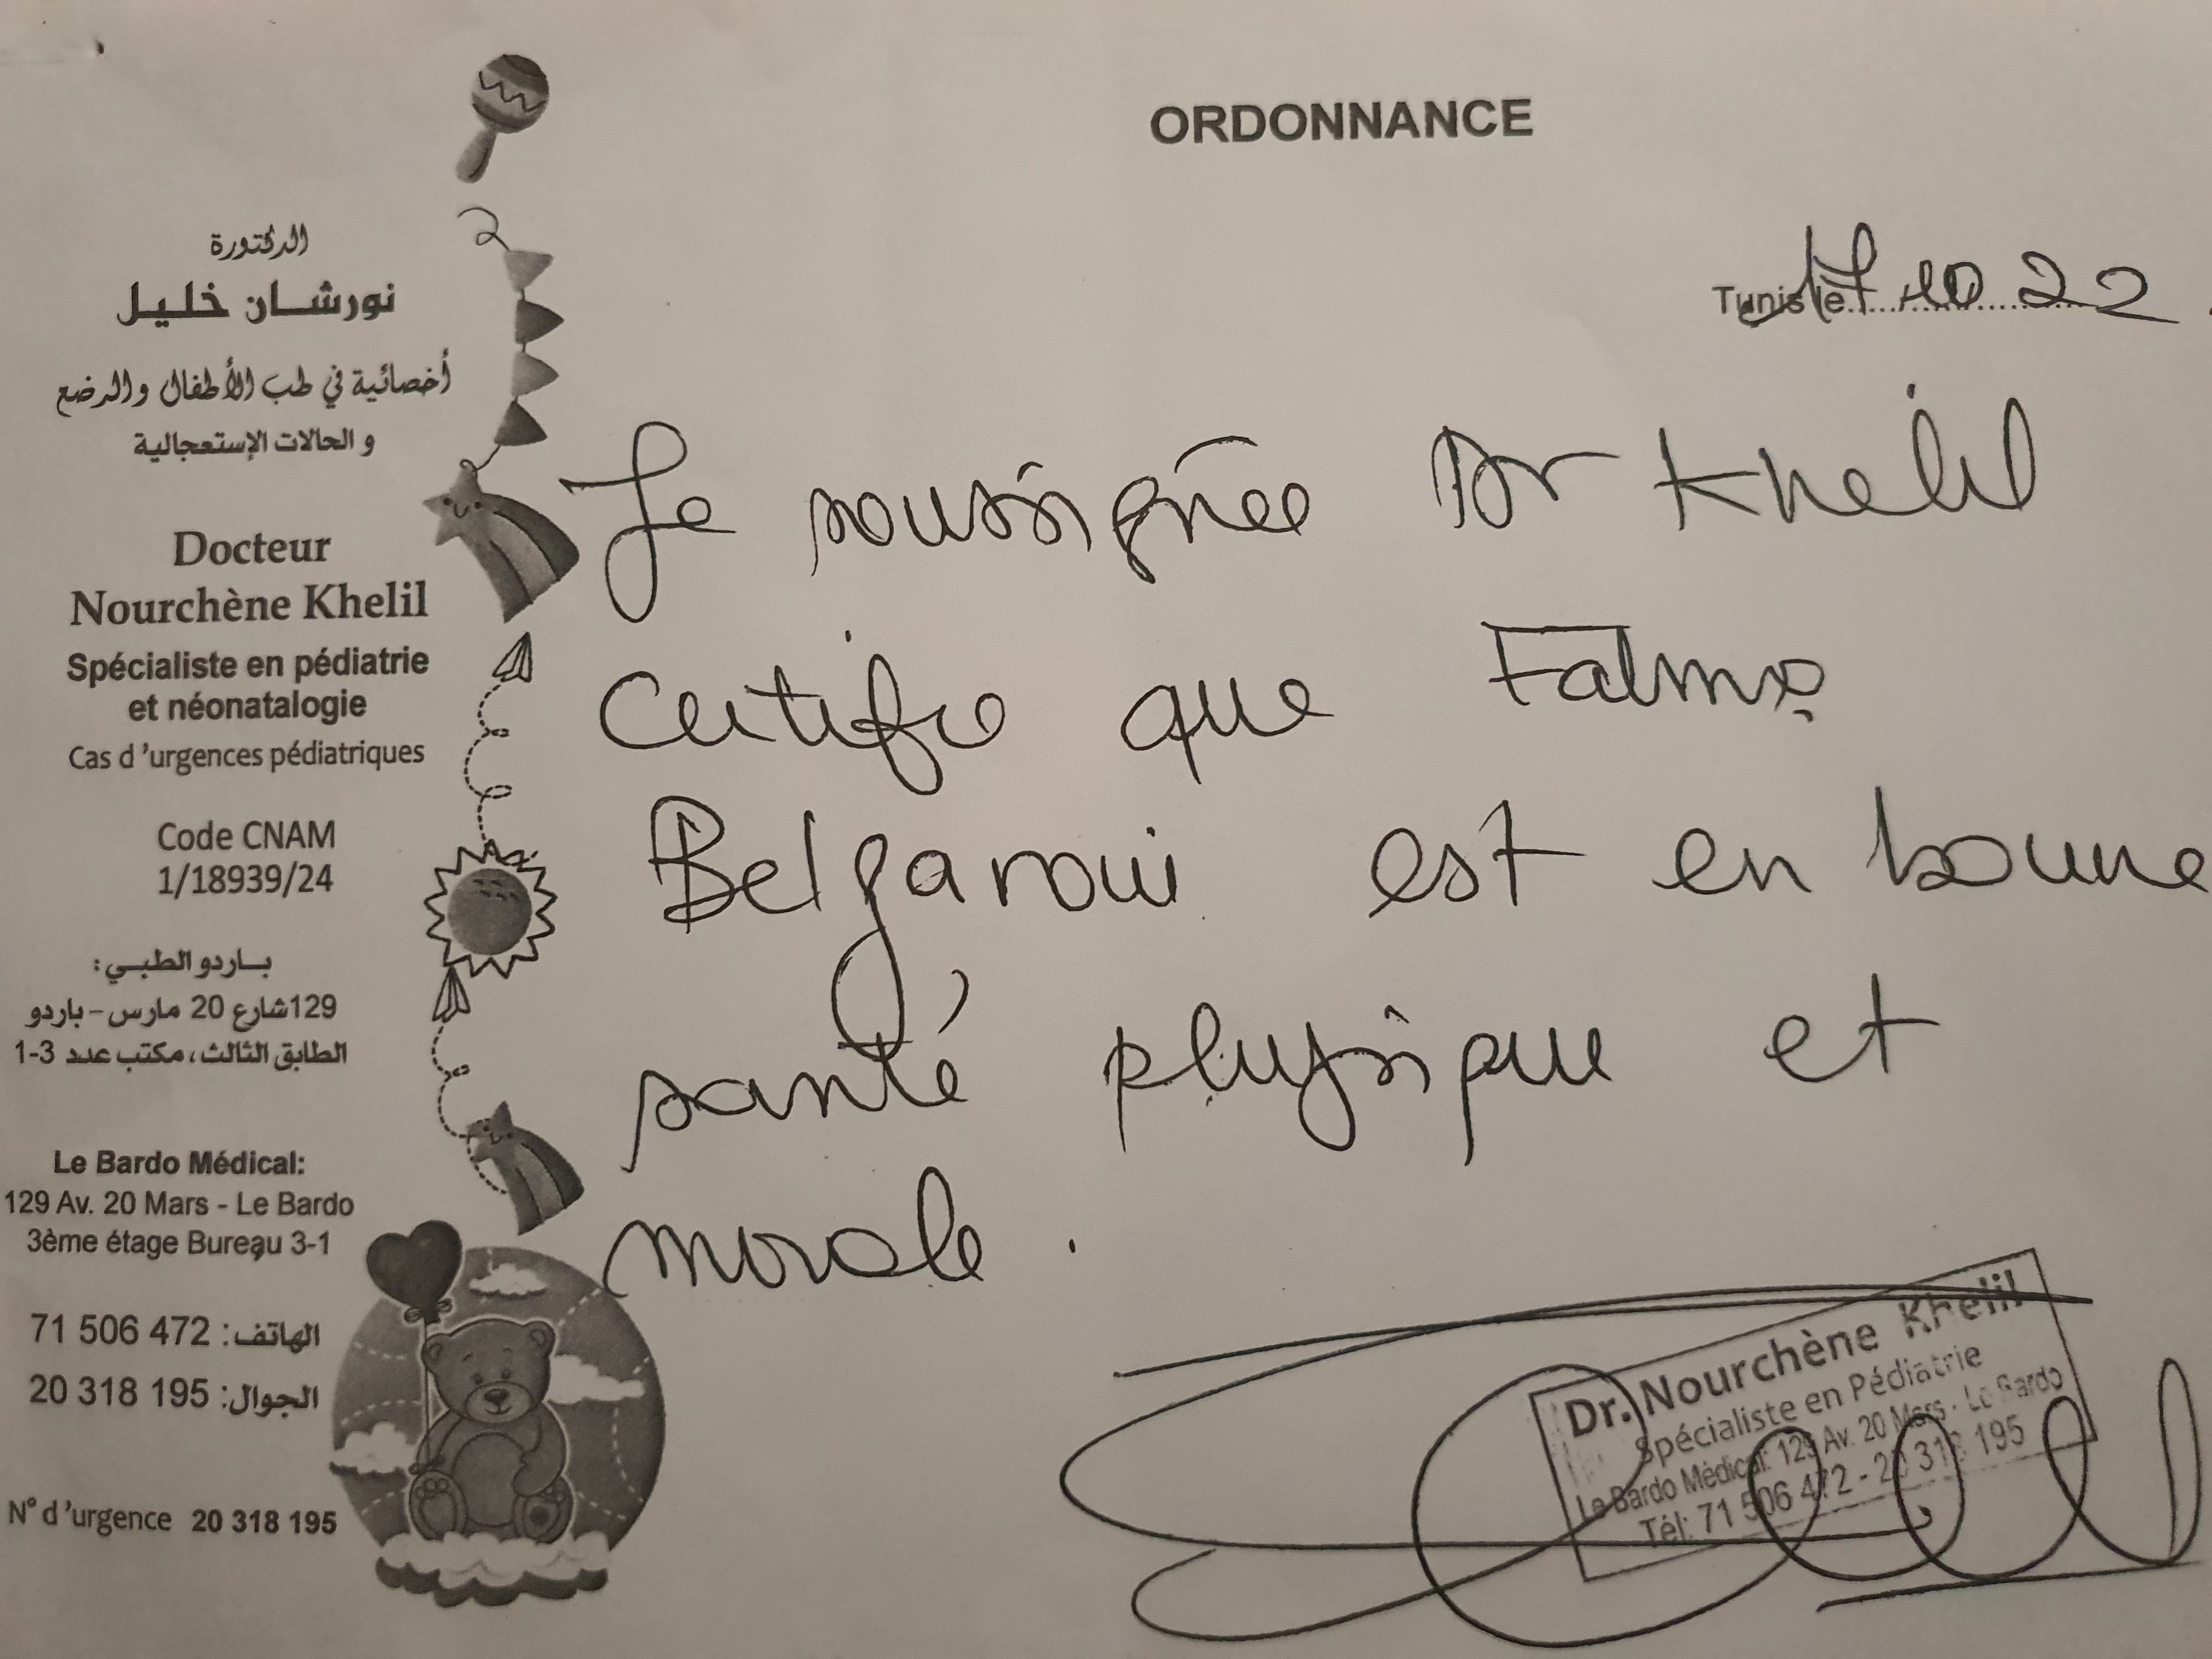 ORDONNANCE
الدكتورة
نورشان خليل
أخصائية في طب الأطفال والرضع
و الحالات الإستعجالية
Docteur
Nourchène Khelil
Spécialiste en pédiatrie
et néonatalogie
Cas d'urgences pédiatriques
Code CNAM
1/18939/24
باردو الطبي:
129شارع 20 مارس - باردو
الطابق الثالث، مكتب عدد 3-1
Le Bardo Médical:
129 Av. 20 Mars - Le Bardo
3ème étage Bureau 3-1
الهاتف: 71 506 472
الجوال: 20 318 195
N° d'urgence 20 318 195
Tunis le 17 10 22
Je soussignée Dr Khelil
certifie que Fatma
Belgaroui est en bonne
santé physique et
morale.
Dr. Nourchène Khelil
Spécialiste en Pédiatrie
Le Bardo Médical: 129 Av. 20 Mars - Le Bardo
Tél: 71 506 472 - 20 318 195